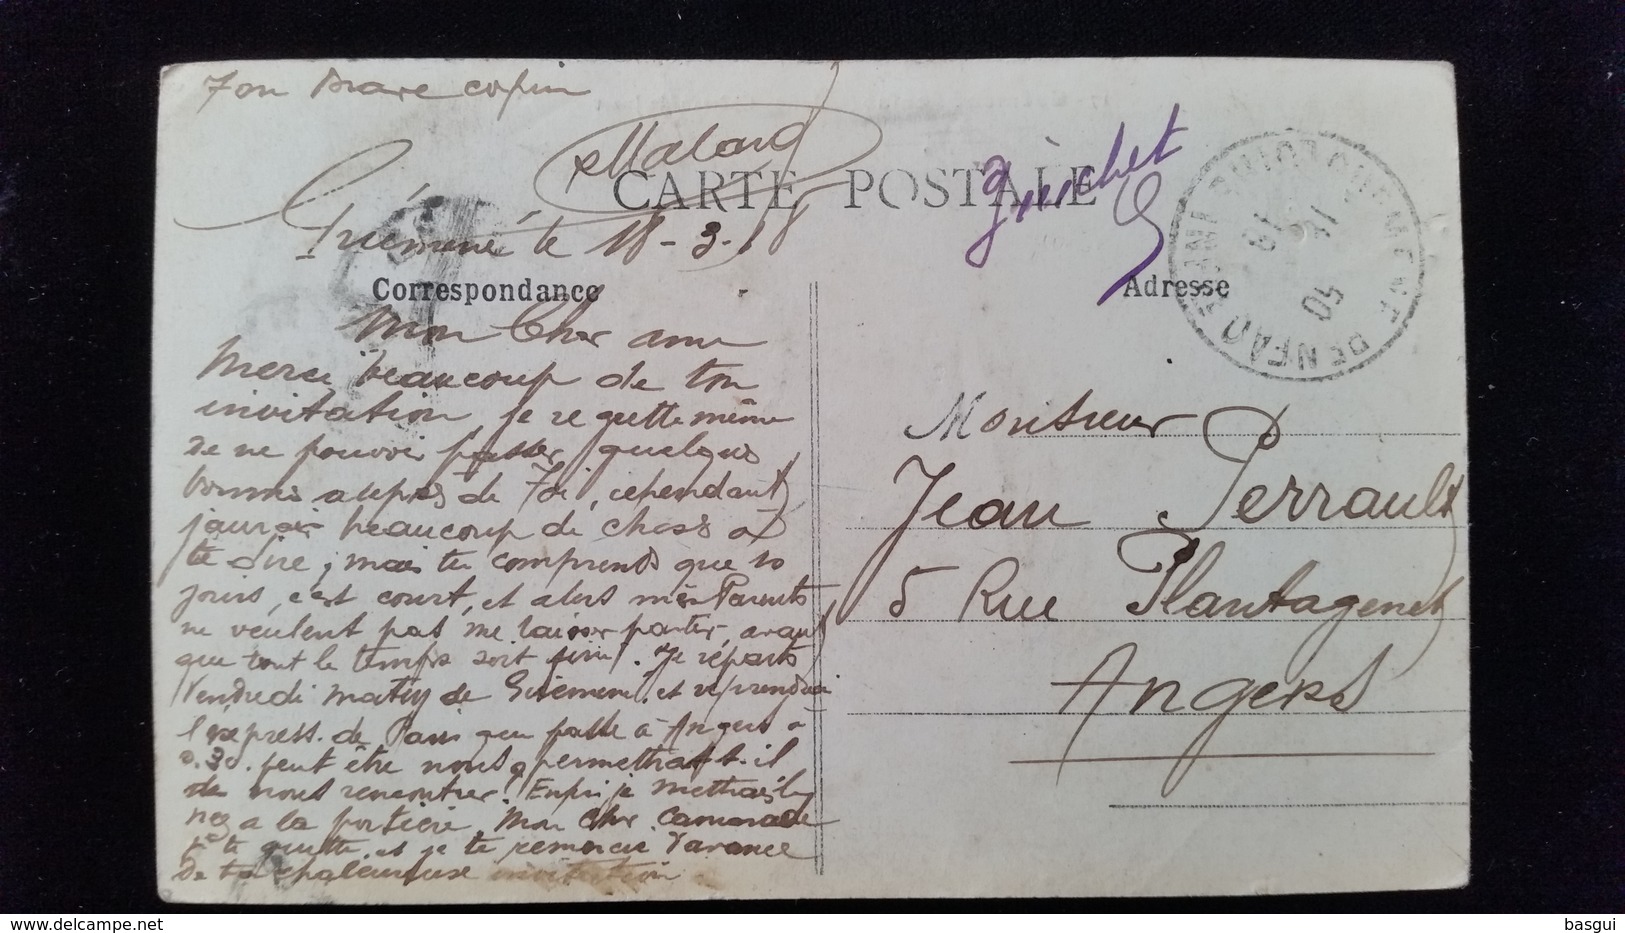 Ton Brave copin
Malard
CARTE POSTALE
Guichet
Guémené le 18-3-18
Correspondance
Adresse
Mon Cher ami
Merci beaucoup de ton
invitation, je regrette même
de ne pouvoir passer quelques
auprès de Toi, cependant
j'aurais beaucoup de choses à
te dire, mais tu comprends que 10
jours, c'est court, et alors mes Parents
ne veulent pas me laisser partir, avant
que tout le temps soit fini. Je repars
Vendredi matin de Guémené et reprendrai
l'express de Paris qui passe à Angers à
3c. peut être nous permettra-t-il
de nous rencontrer. Enfin je mettrais le
nez a la portière. Mon Cher Camarade
je te quitte et je te remercie d'avance
De ta chaleureuse invitation
Monsieur
Jean Perrault
5 Rue Plantagenet
Angers
basgui